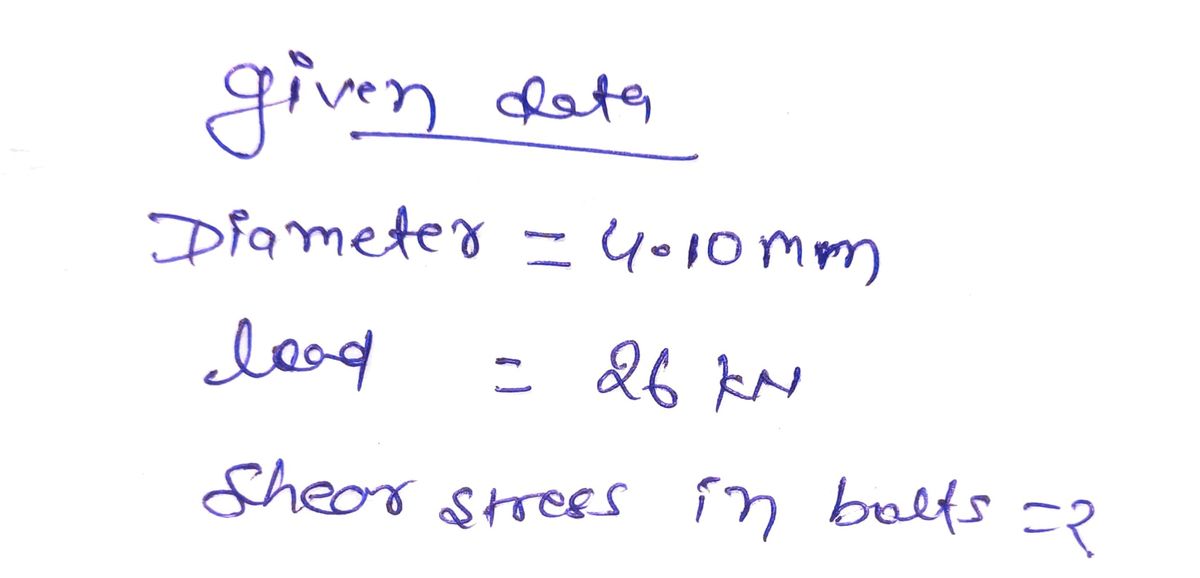 given data
Diameter = 4.10 mm
load = 26 kN
Shear stress in bolts = ?